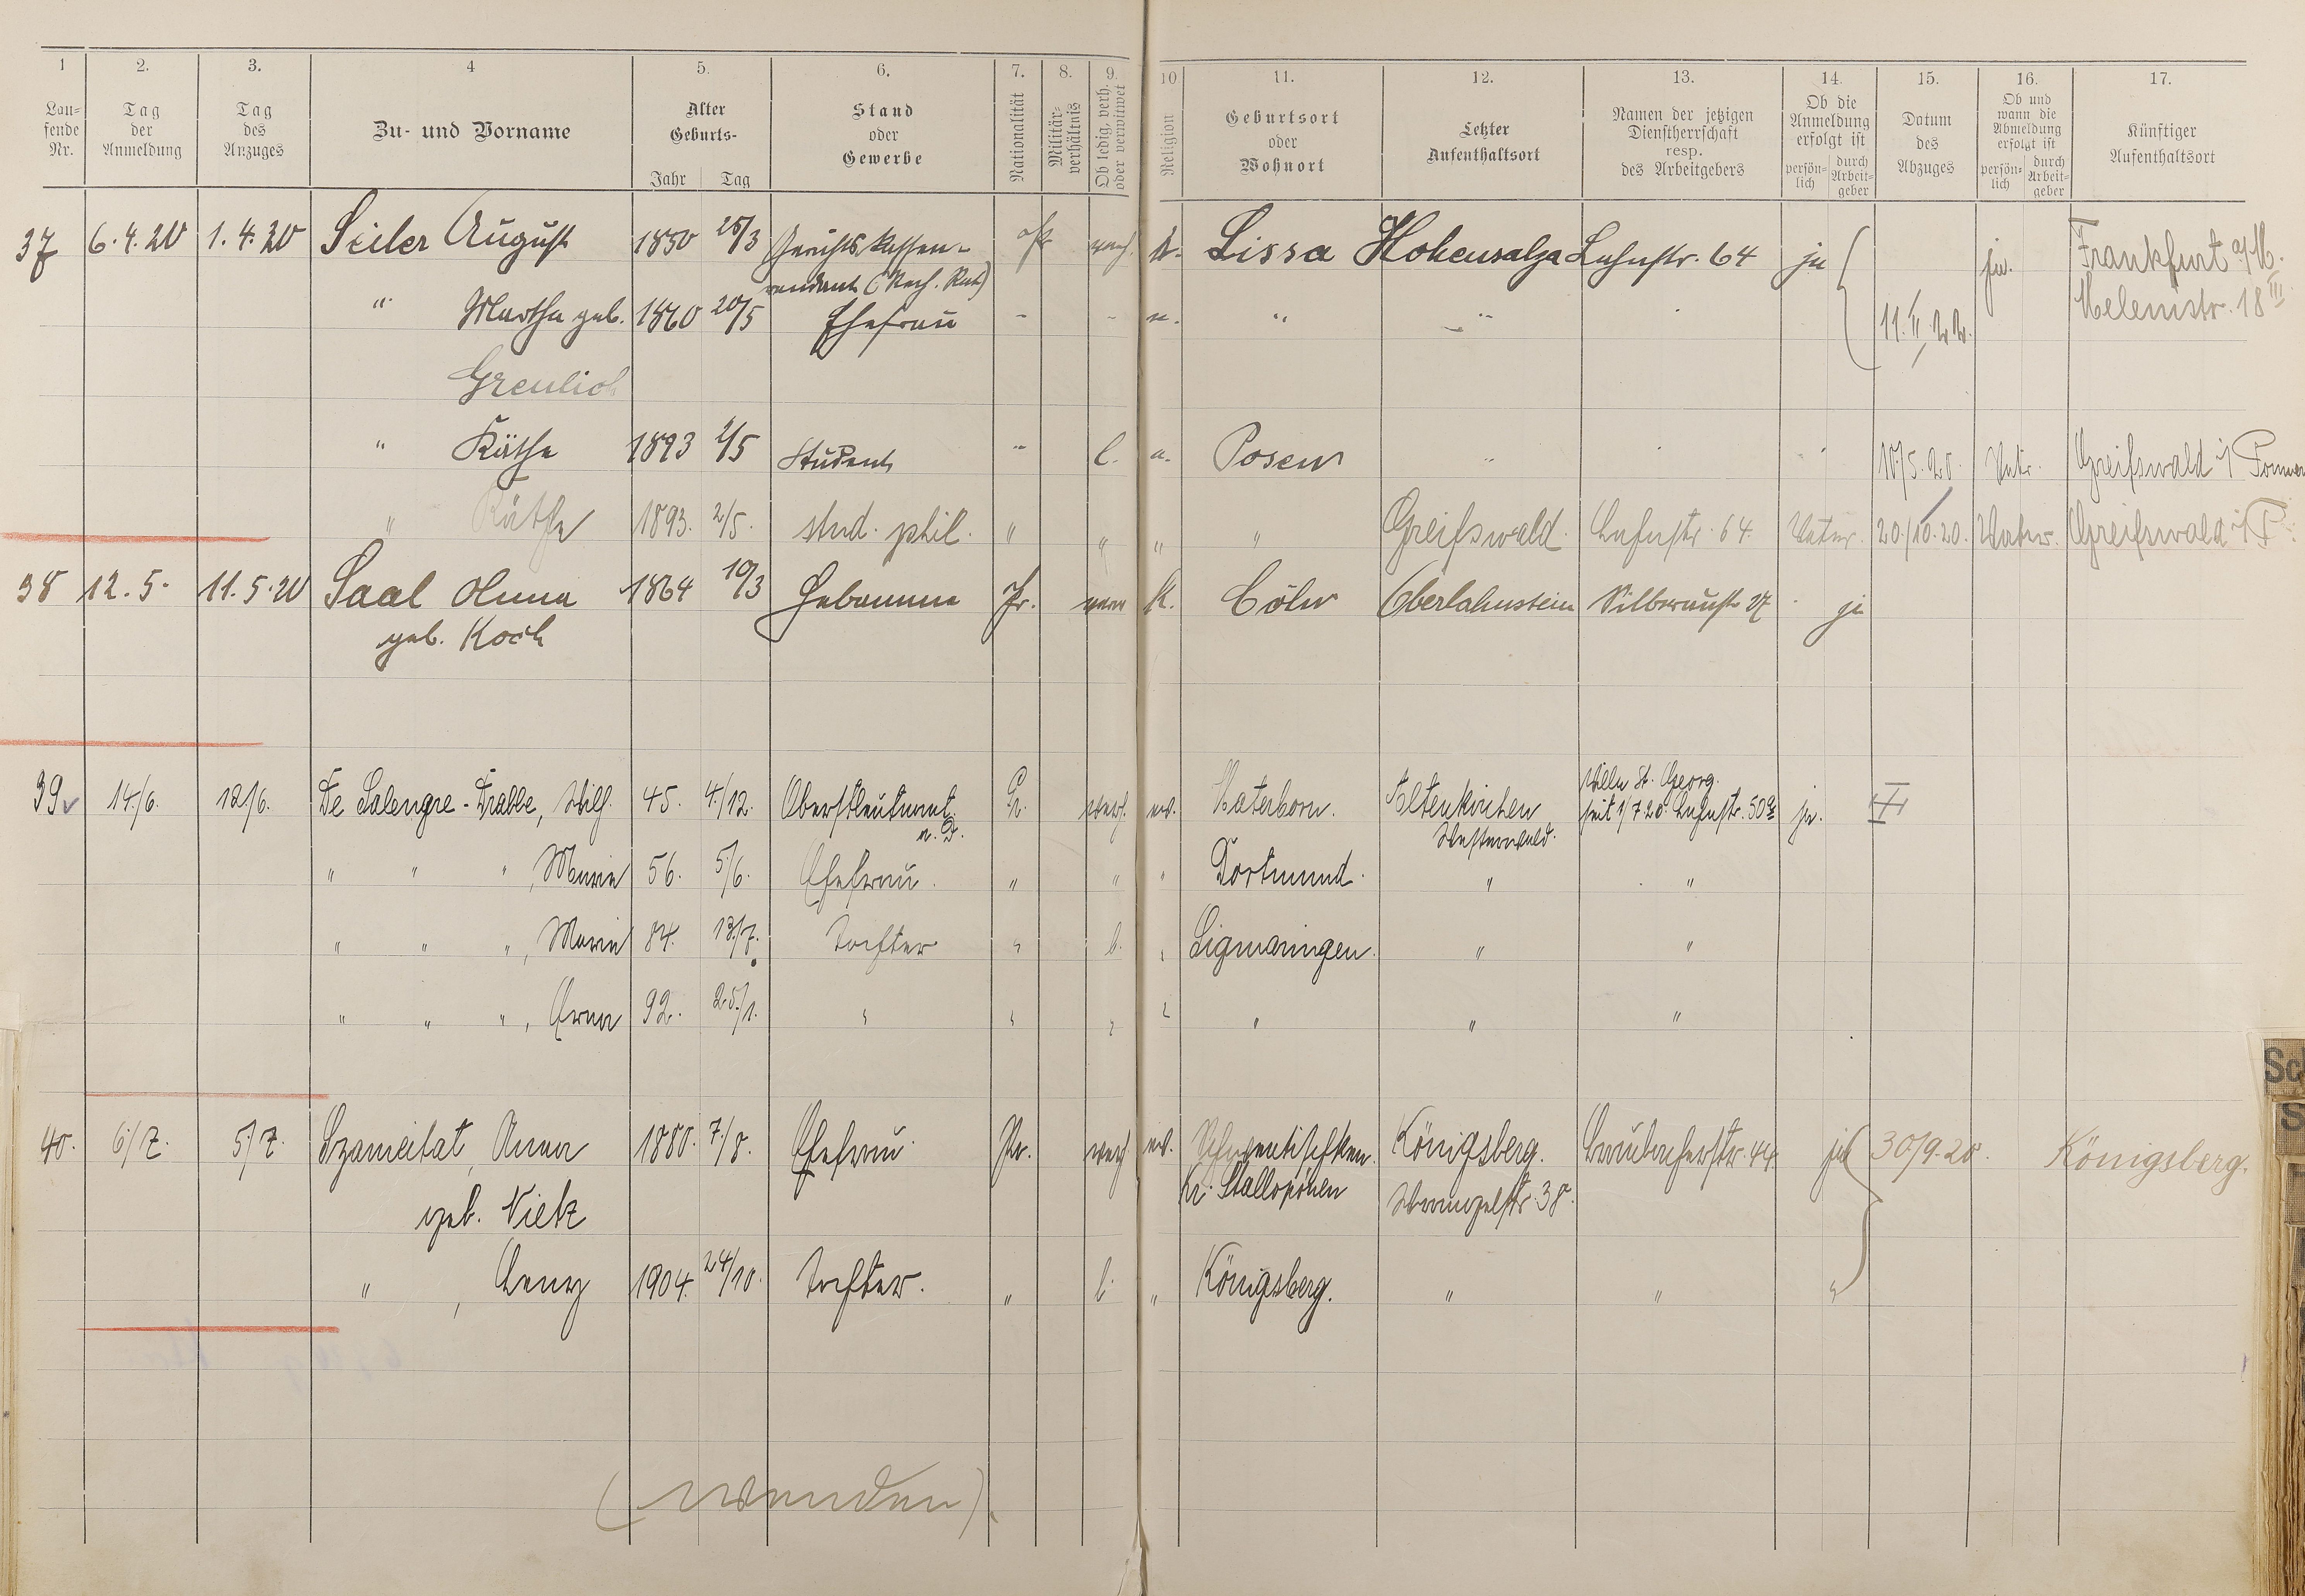 1 2. 3. 4 5. 6. 7. 8. 9. 10 11. 12. 13. 14. 15. 16. 17.
Lau-
fende
Nr.
Tag
der
Anmeldung
Tag
des
Anzuges
Zu- und Vorname
Alter
Geburts-
Jahr Tag
Stand
oder
Gewerbe
Nationalität
Militär-
verhältnis
Ob ledig, verh.
oder verwitwet
Religion
Geburtsort
oder
Wohnort
Letzter
Aufenthaltsort
Namen der jetzigen
Dienstherrschaft
resp.
des Arbeitgebers
Ob die
Anmeldung
erfolgt ist
persön-
lich
durch
Arbeit-
geber
Datum
des
Abzuges
Ob und
wann die
Abmeldung
erfolgt ist
persön-
lich
durch
Arbeit-
geber
Künftiger
Aufenthaltsort
37 6.4.20 1.4.20 Seiler August 1850 25/3 Gerichtskassen- verh. Lissa Hohensalza Luhnstr. 64 ja ja. Frankfurt a/M.
rendant (Rech. Rat)
" Martha geb. 1860 20/5 Ehefrau " " " 11.II.22. Melemstr. 18 III
Greulich
" Käthe 1893 2/5 Student " l. Posen " 10/5.20. Vater Greifswald i/ Pommern
" Käthe 1893. 2/5. stud. phil. " " " " Greifswald. Luhnstr. 64. Vater. 20./10.20. Vater. Greifswald i/P.
38 12.5. 11.5.20 Saal Anna 1864 10/3 Hebamme Pr. verw K. Cöln Oberlahnstein 27 ja
geb. Koch
39 14./6. 12/6. De Salengre-Drabbe, Wilh. 45. 4./12. Oberstleutnant a. D. Pr. verh. ev. Materborn. Altenkirchen Westerwald. Villa St. Georg.
seit 1/7 20. Luhnstr. 50a ja.
" " ", Marie 56. 5./6. Ehefrau. " " " Dortmund. " "
" " ", Marie 84. 13./7. Tochter " l. " Sigmaringen. " "
" " ", Erna 92. 25./1. " " " " " " "
40. 6./7. 5./7. Szameitat, Anna 1880. 7./8. Ehefrau. Pr. verh ev. Königsberg. Braubacherstr. 44. ja 30./9.20. Königsberg.
geb. Vietz
Kr. Stallupönen Wrangelstr. 38.
" , Leny 1904. 24/10. Tochter. " l. " Königsberg. " " "
(wenden).
Sc
S